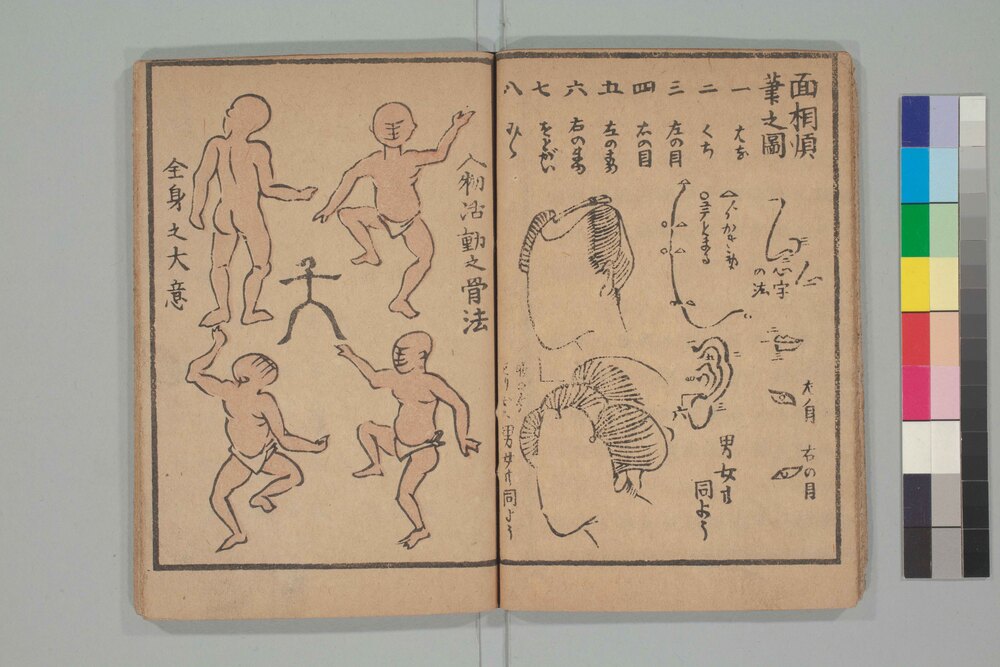 面相順
筆之圖
一 はな
二 くち
三 左の目
四 右の目
五 左のまゆ
六 右のまゆ
七 をとがい
八 みゝ
心字
の法
左ノ目
右の目
六
男女共
同よう
男女共同よう
人物活動之骨法
全身之大意